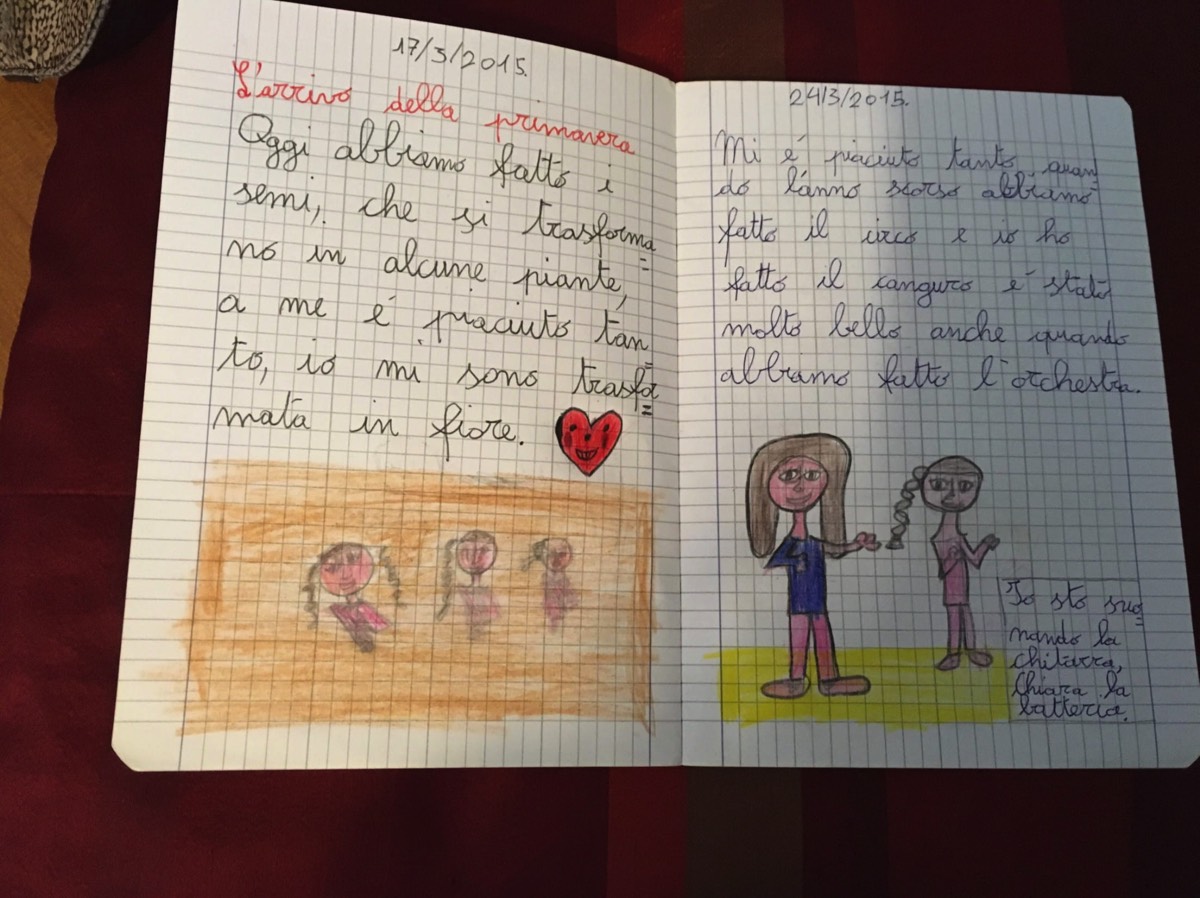 17/3/2015.
L'arrivo della primavera
Oggi abbiamo fatto i
semi, che si trasforma=
no in alcune piante,
a me é piaciuto tan=
to, io mi sono trasfor=
mata in fiore.
24/3/2015.
Mi é piaciuto tanto, quan=
do l'anno scorso abbiamo
fatto il circo e io ho
fatto il canguro é stato
molto bello anche quando
abbiamo fatto l'orchestra.
Io sto suo=
nando la
chitarra,
Chiara la
batteria.